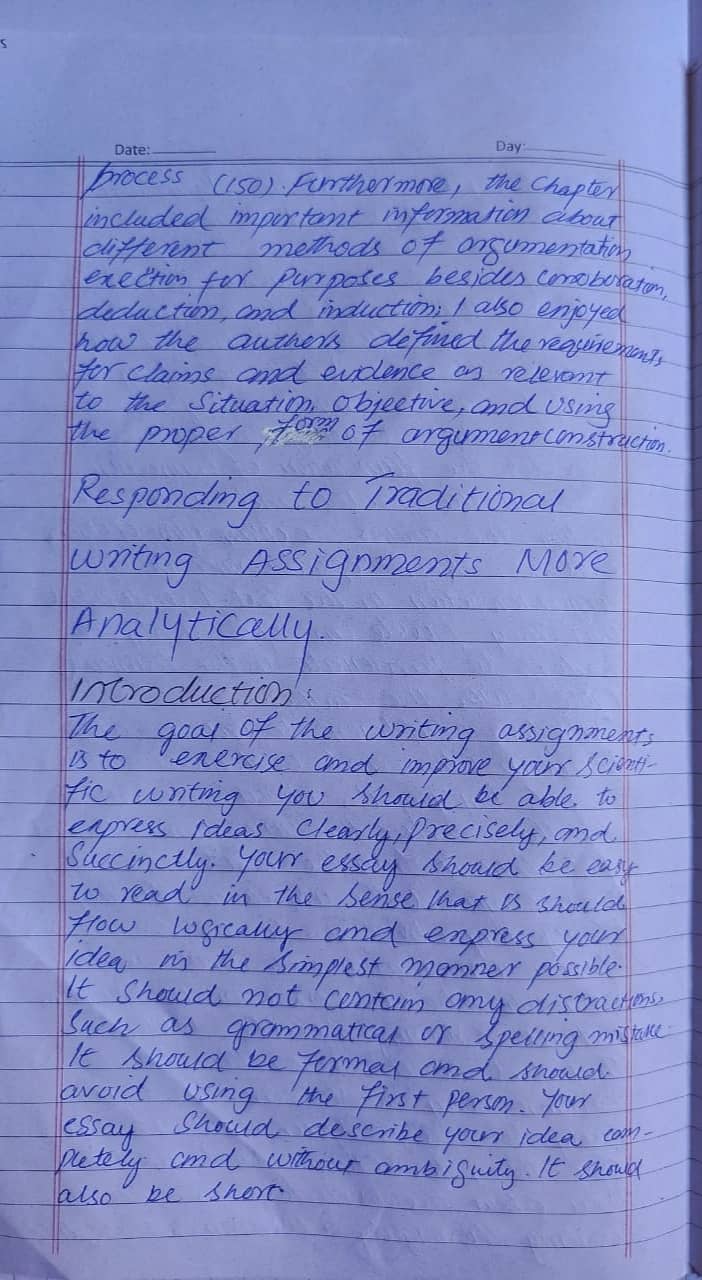 s
Date: Day:
process (150). Furthermore, the Chapter
included important information about
different methods of argumentation
erection for purposes besides corroboration,
deduction, and induction; I also enjoyed
how the authors defined the requirements
for claims and evidence as relevant
to the situation, objective, and using
the proper form of argument construction.
Responding to Traditional
writing Assignments More
Analytically.
Introduction:
The goal of the writing assignments
is to exercise and improve your scienti-
fic writing you should be able to
express ideas clearly, precisely, and
succinctly. your essay should be easy
to read in the sense that is should
flow logically and express your
idea in the simplest manner possible.
It should not contain any distractions,
such as grammatical or spelling mistake.
It should be formal and should
avoid using the first person. Your
essay should describe your idea com-
pletely and without ambiguity. It should
also be short